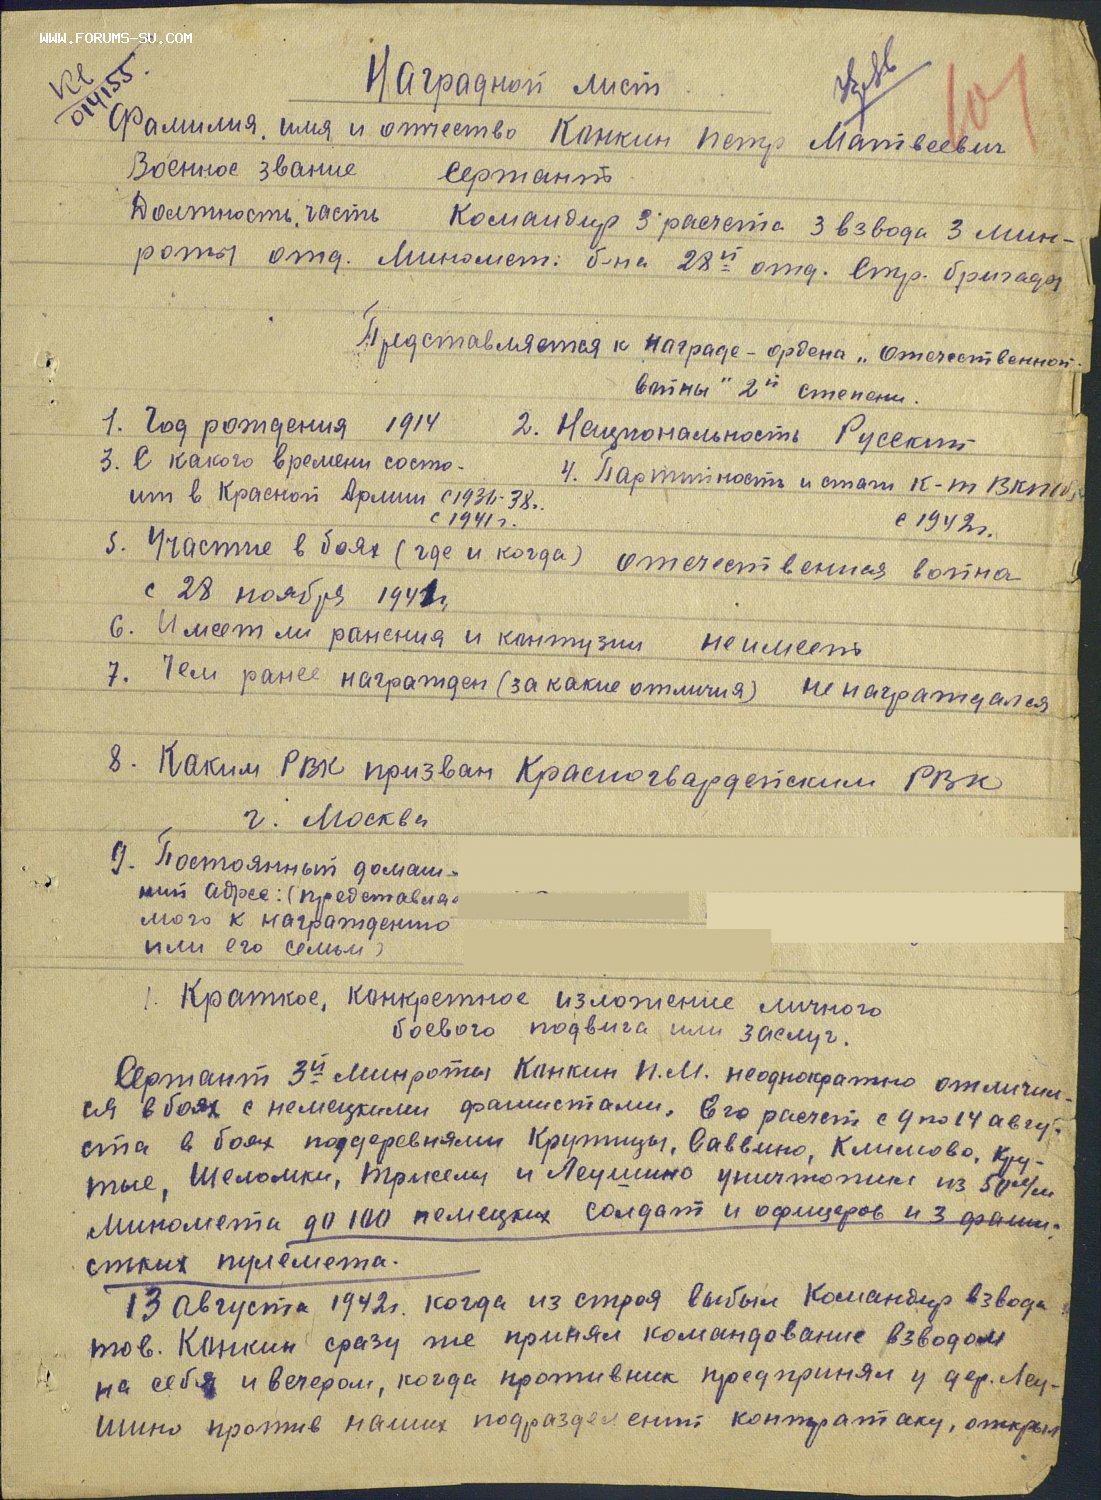 WWW.FORUMS-SU.COM
Кв
014155.
Наградной лист
Фамилия, имя и отчество Канкин Петр Матвеевич
Военное звание Сержант
Должность, часть Командир 3 расчета 3 взвода 3 мин-
роты отд. Миномет. б-на 28й отд. Стр. бригады
Представляется к награде - ордена „Отечественной
войны" 2й степени.
1. Год рождения 1914 2. Национальность Русский
3. С какого времени состо-
ит в Красной Армии с 1936-38г.
с 1941г.
4. Партийность и стаж к-т ВКП(б)
с 1942г.
5. Участие в боях (где и когда) отечественная война
с 28 ноября 1941г.
6. Имеет ли ранения и кантузии не имеет
7. Чем ранее награжден (за какие отличия) не награждался
8. Каким РВК призван Красногвардейским РВК
г. Москва
9. Постоянный домаш-
ний адрес: (представляе
мого к награждению
или его семьи)
1. Краткое, конкретное изложение личного
боевого подвига или заслуг.
Сержант 3й минроты Канкин П.М. неоднократно отличил-
ся в боях с немецкими фашистами. Его расчет с 9 по 14 авгу-
ста в боях под деревнями Крутицы, Саввино, Климово, Кру-
тые, Шеломки, и Леушино уничтожил из 50 м/м
миномета до 100 немецких солдат и офицеров и 3 фаши-
стких пулемета.
13 августа 1942г. когда из строя выбыл Командир взвода
тов. Канкин сразу же принял командование взводом
на себя и вечером, когда противник предпринял у дер. Леу-
шино против наших подразделений контратаку, открыл